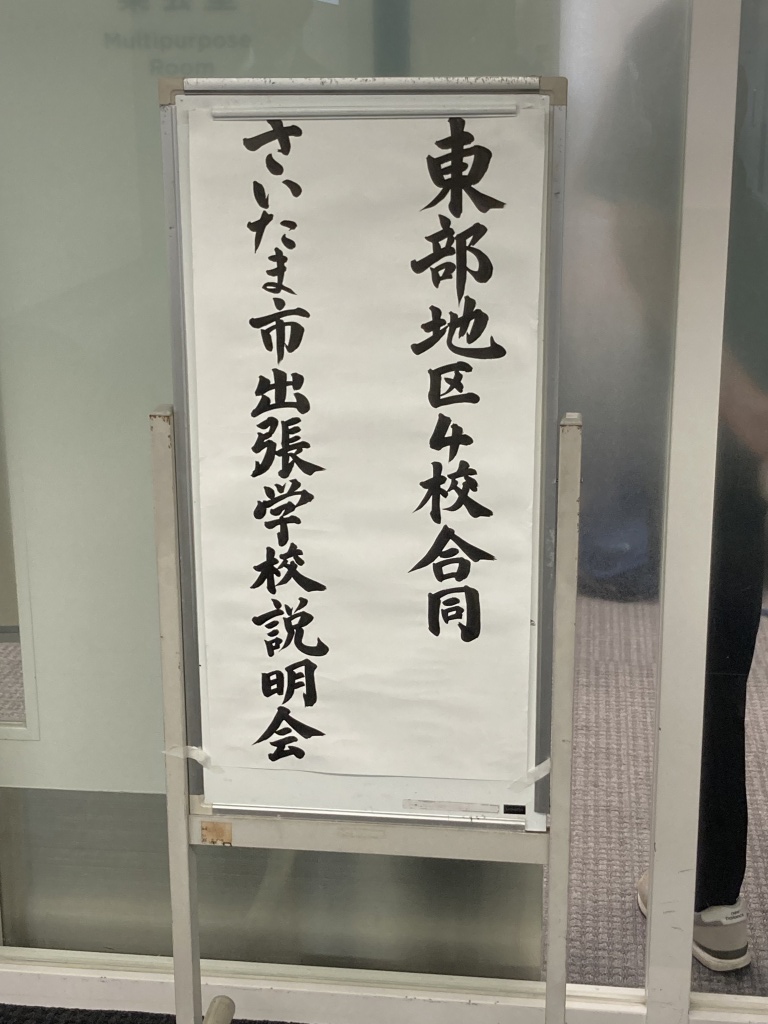 東部地区4校合同
さいたま市出張学校説明会
Multipurpose
Room